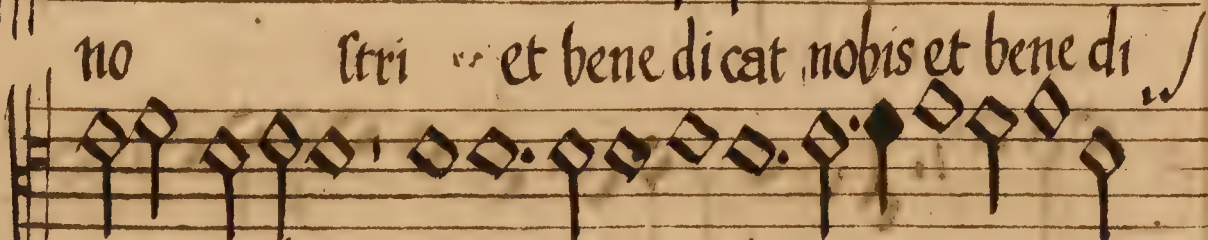 no ſtri et bene dicat nobis et bene di